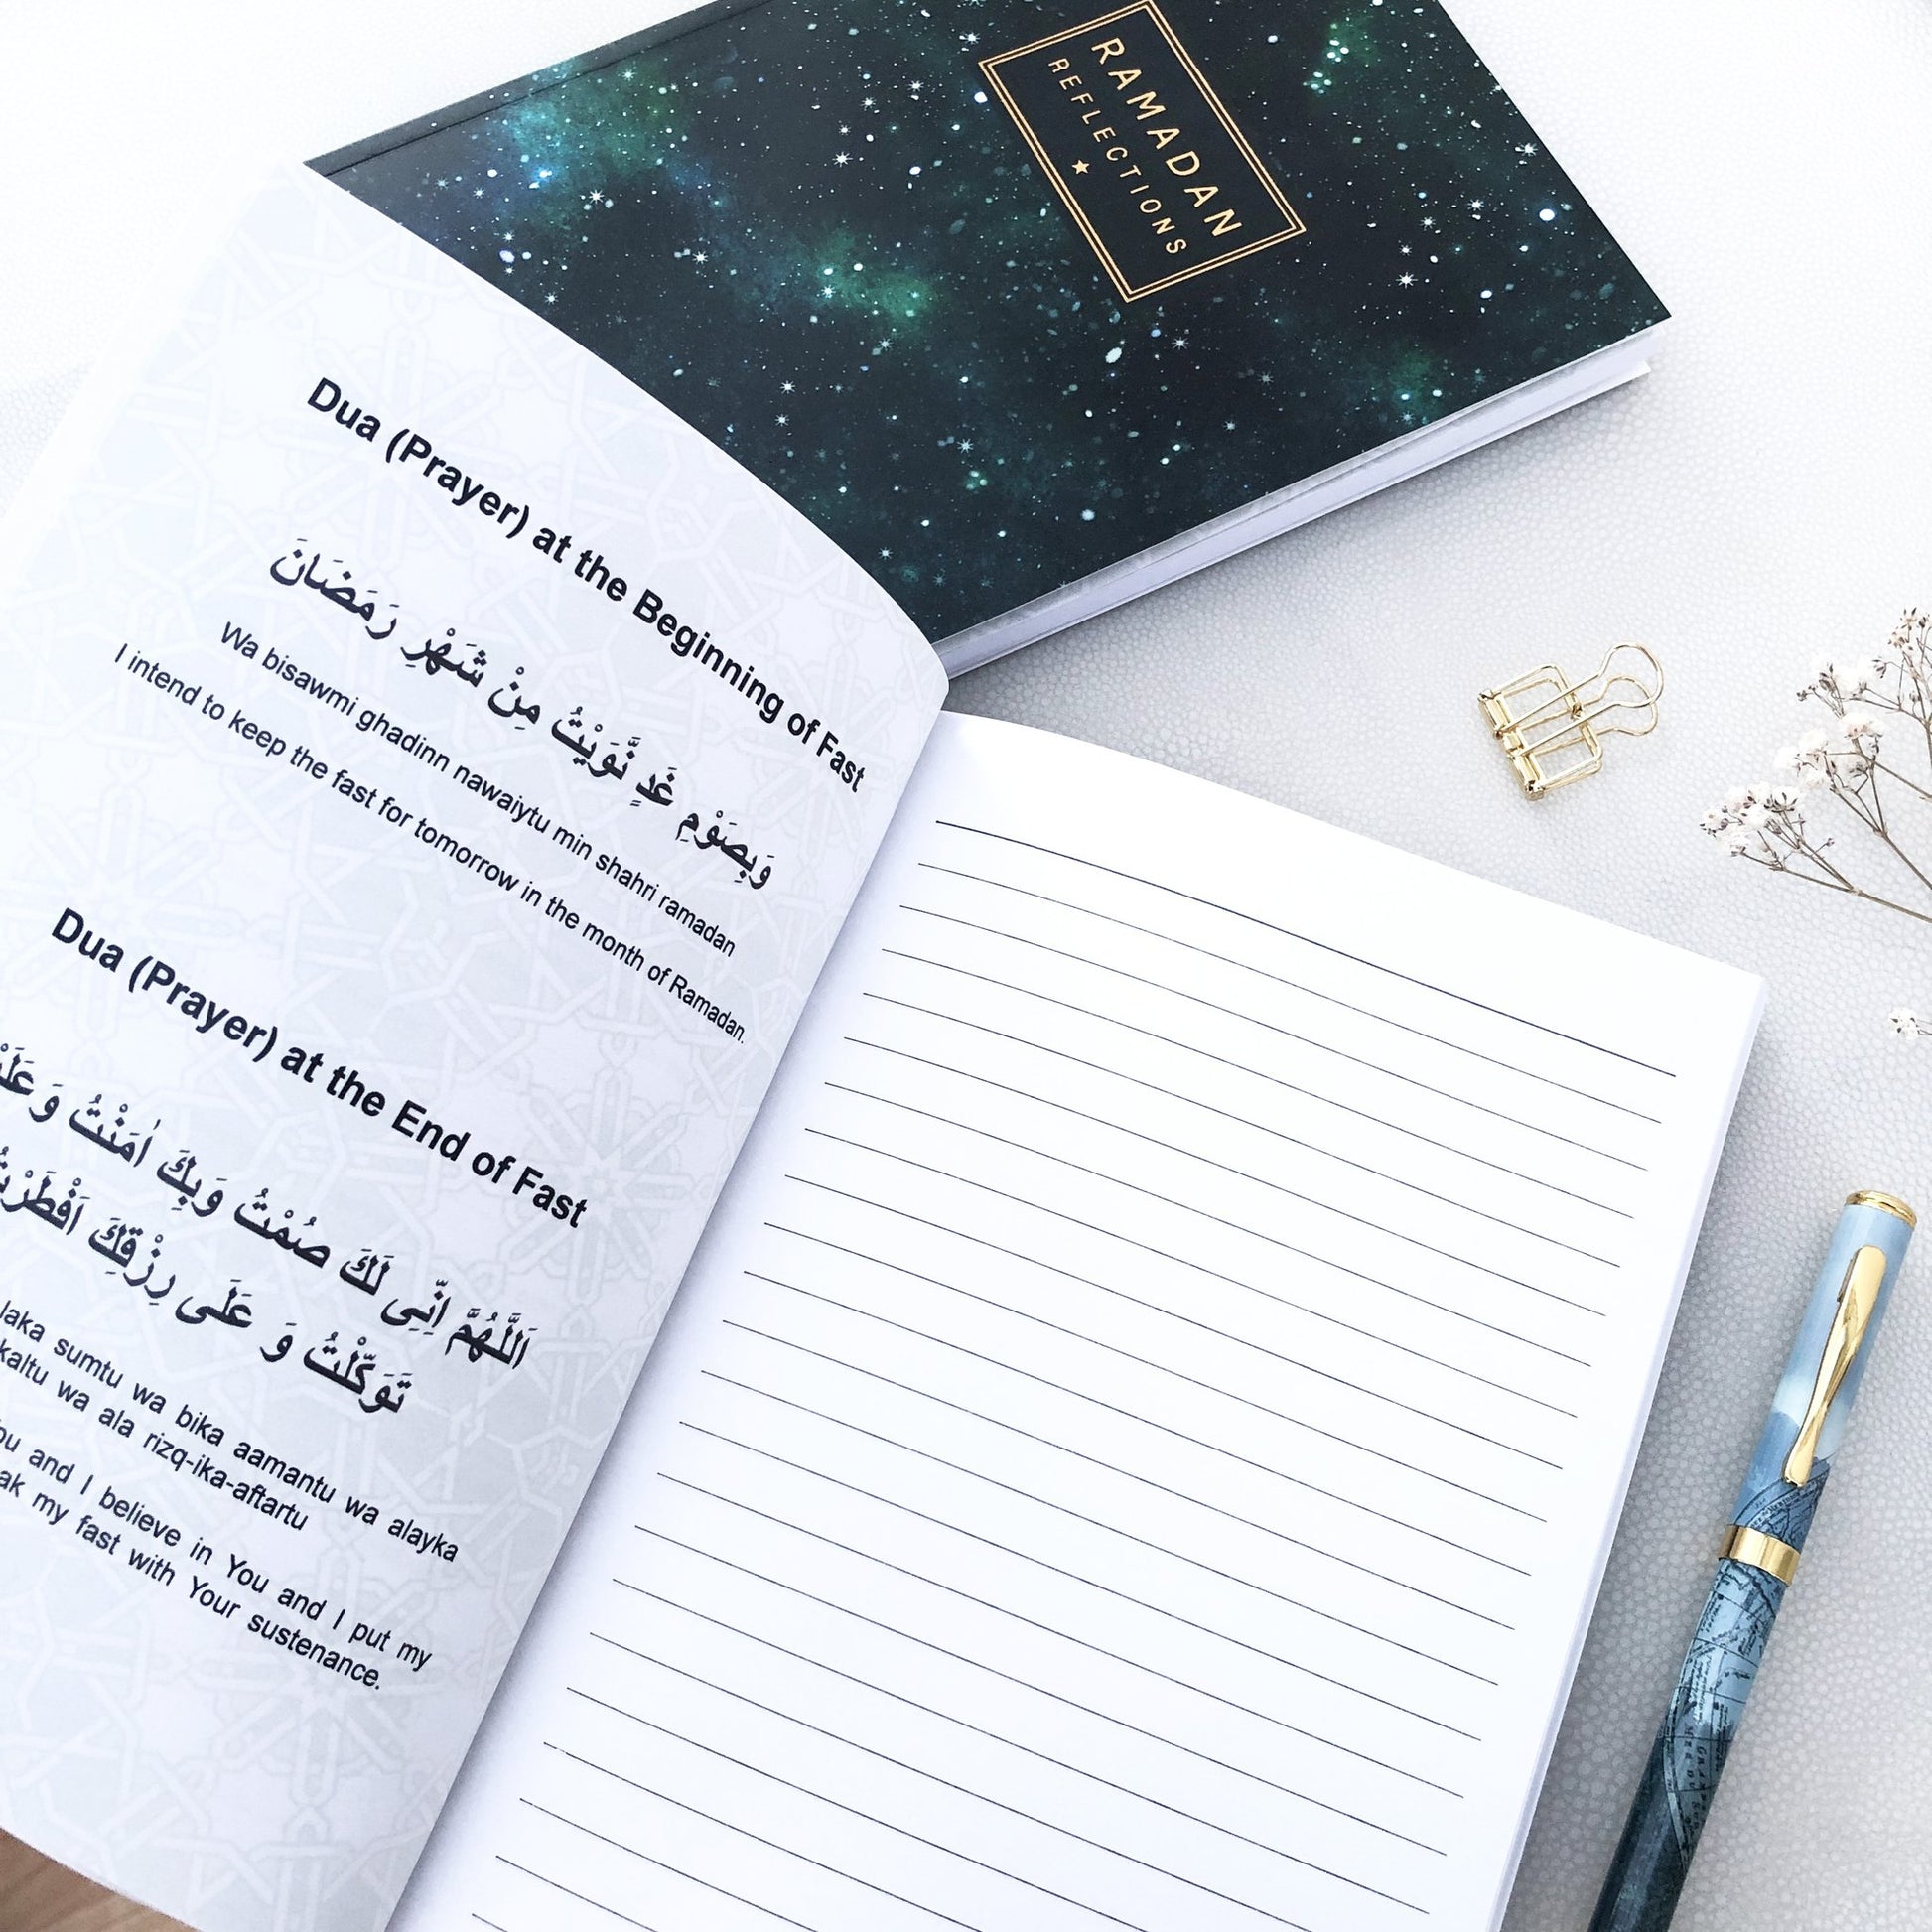 RAMADAN
REFLECTIONS
Dua (Prayer) at the Beginning of Fast
وَبِصَوْمِ غَدٍ نَّوَيْتُ مِنْ شَهْرِ رَمَضَانَ
Wa bisawmi ghadinn nawaiytu min shahri ramadan
I intend to keep the fast for tomorrow in the month of Ramadan.
Dua (Prayer) at the End of Fast
اَللَّهُمَّ اِنِّى لَكَ صُمْتُ وَبِكَ اٰمَنْتُ وَ
تَوَكَّلْتُ وَ عَلَى رِزْقِكَ
laka sumtu wa bika aamantu wa alayka
wa ala rizq-ika-aftartu
and I believe in You and I put my
my fast with Your sustenance.